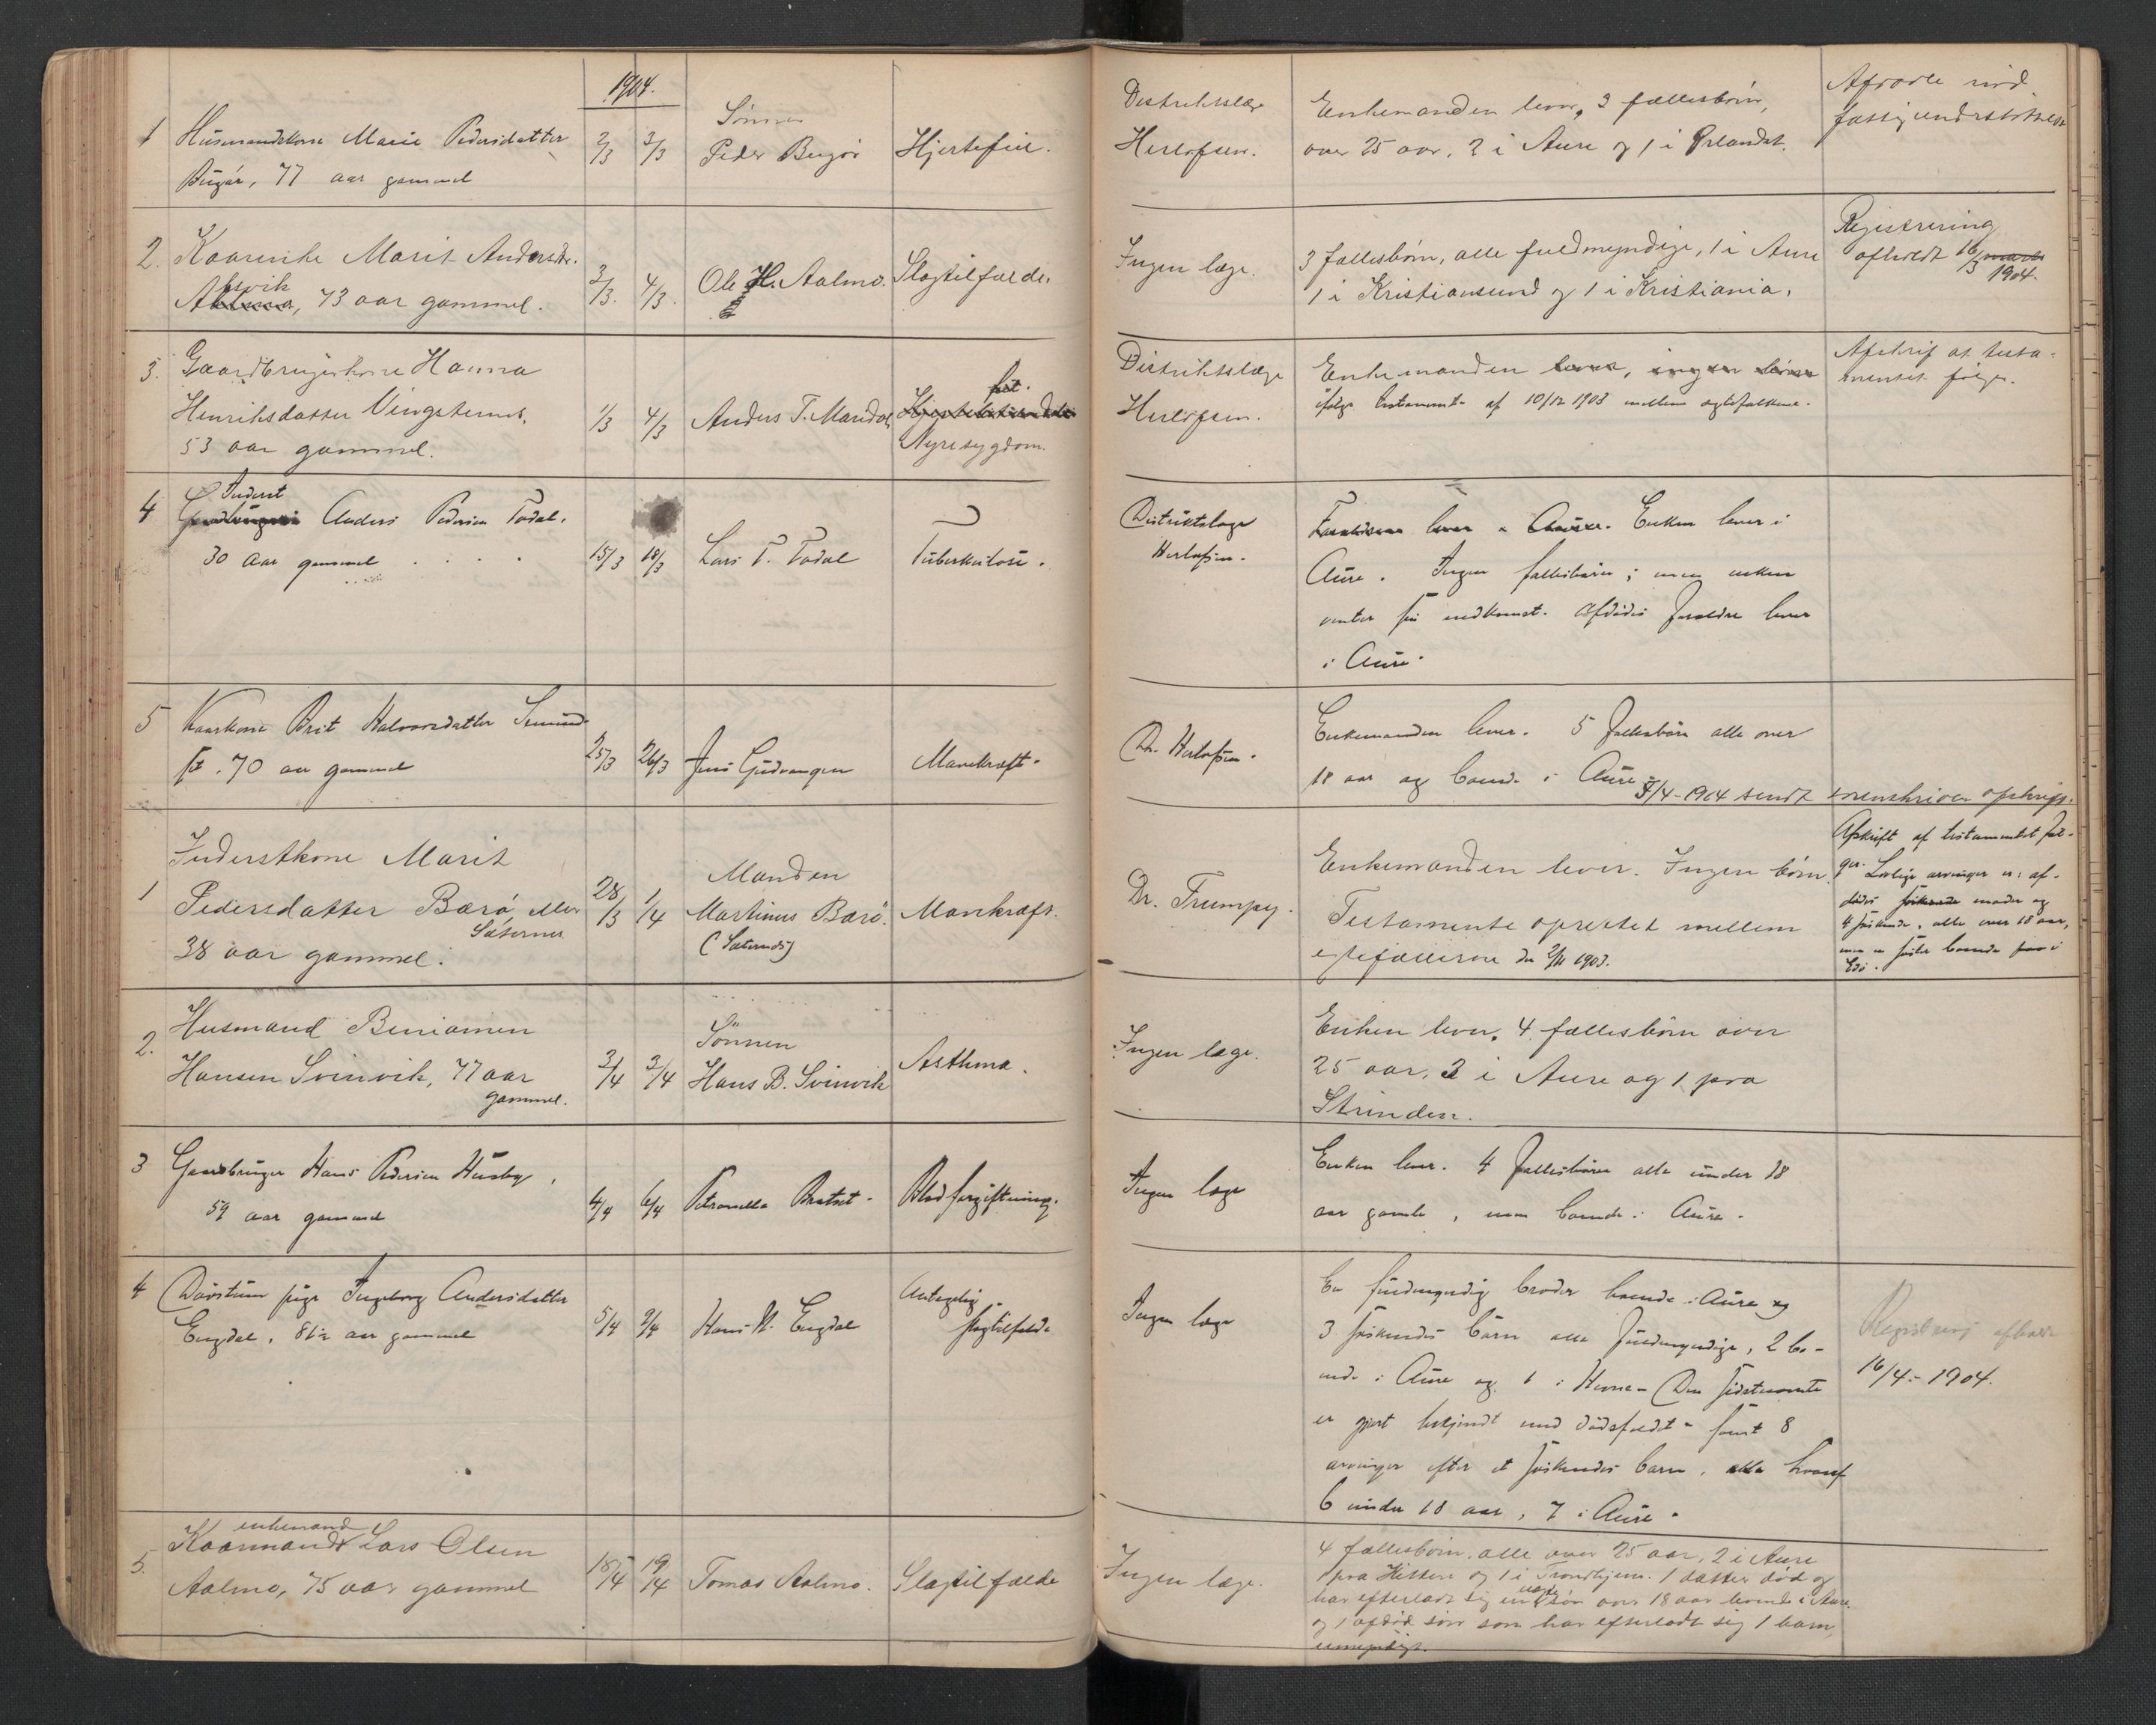 1904.
1 Husmandskone Marie Pedersdatter 2/3 3/3 Sønnen Hjertefeil. Distriktslæge Enkemanden lever, 3 fællesbørn, Afdøde nød
Bugør, 77 aar gammel Peder Bugør Herlofsen. over 25 aar, 2 i Aure og 1 i Ørlandet. fattigunderstøttelse
2. Kaarenke Marit Andersdr. 2/3. 4/3. Ole H. Aalmo. Slagtilfælde. Ingen læge. 3 fællesbørn, alle fuldmyndige, 1 i Aure Registrering
73 aar gammel. 1 i Kristiansund og 1 i Kristiania. afholdt 16/3 1904.
3. Gaardbrugerkone Hanna Distriktslæge Enkemanden lever, ingen børn Afskrift at testa-
Henriksdatter Vingsternes, 1/3 4/3 Anders T. Mardal Herlofsen. ifølge testamente af 10/12 1903 mellem ægtefolkene. mentet følger.
53 aar gammel. Nyresygdom.
4 Inderst Anders Pedersen Todal, Distriktslæge lever i Aure. Enken lever i
30 aar gammel 15/3 18/3 Lars T. Todal Tuberkulose. Herlofsen. Aure. Ingen fællesbørn; men enken
venter sin nedkomst. Afdødes forældre lever
i Aure.
5 Kaarkone Brit Halvorsdatter Enkemanden lever. 5 fællesbørn alle over
70 aar gammel 25/3 26/3 Jens Gudvangen Marekræft. Dr. Herlofsen. 18 aar og boende i Aure
5/4-1904 sendt sorenskriver opskrift.
1 Inderstkone Marit 28/3 1/4 Manden Enkemanden lever. Ingen børn. Afskrift af testamentet føl-
Pedersdatter Barø eller Martinus Barø. Mavekræft. Dr. Trumpy. ger. Lovlige arvinger er: af-
Sæternes (Sæternes) Testamente oprettet mellem dødes moder og
38 aar gammel. egtefællerne den 2/11 1903. 4 søskende, alle over 18 aar,
boende i
Edø.
2. Husmand Beniamin Sønnen Enken lever. 4 fællesbørn over
Hansen Svinvik, 77 aar 2/4 3/4 Hans B. Svinvik Asthma. Ingen læge. 25 aar, 3 i Aure og 1 paa
gammel. Strinden.
3 Gaardbruger Hans Pedersen Husby, Enken lever. 4 fællesbørn alle under 18
59 aar gammel 4/4 6/4 Petronelle Bratset. Blodforgiftning. Ingen læge aar gamle, men boende i Aure.
4 pige Ingeborg Andersdatter Antagelig En fuldmyndig broder boende i Aure og
Engdal, 81½ aar gammel 5/4 9/4 Hans H. Engdal slagtilfælde Ingen læge 3 søskendes børn alle fuldmyndige, 2 bo- Registrering afholdt
ende i Aure og 1 i Hevne. Den sidstnævnte 16/4-1904.
er gjort bekjendt med dødsfaldet. samt 8
arvinger efter et søskendes barn, alle hvoraf
6 under 18 aar, 7 i Aure.
5. Kaarmand enkemand Lars Olsen 18/4 19/4 4 fællesbørn, alle over 25 aar, 2 i Aure
Aalmo, 75 aar gammel Tomas Aalmo. Slagtilfælde Ingen læge. 1 paa Hitteren og 1 i Trondhjem. 1 datter død og
har efterladt sig en uægte søn over 18 aar boende i Aure
og 1 afdød søn som har efterladt sig 1 barn,
umyndigt.